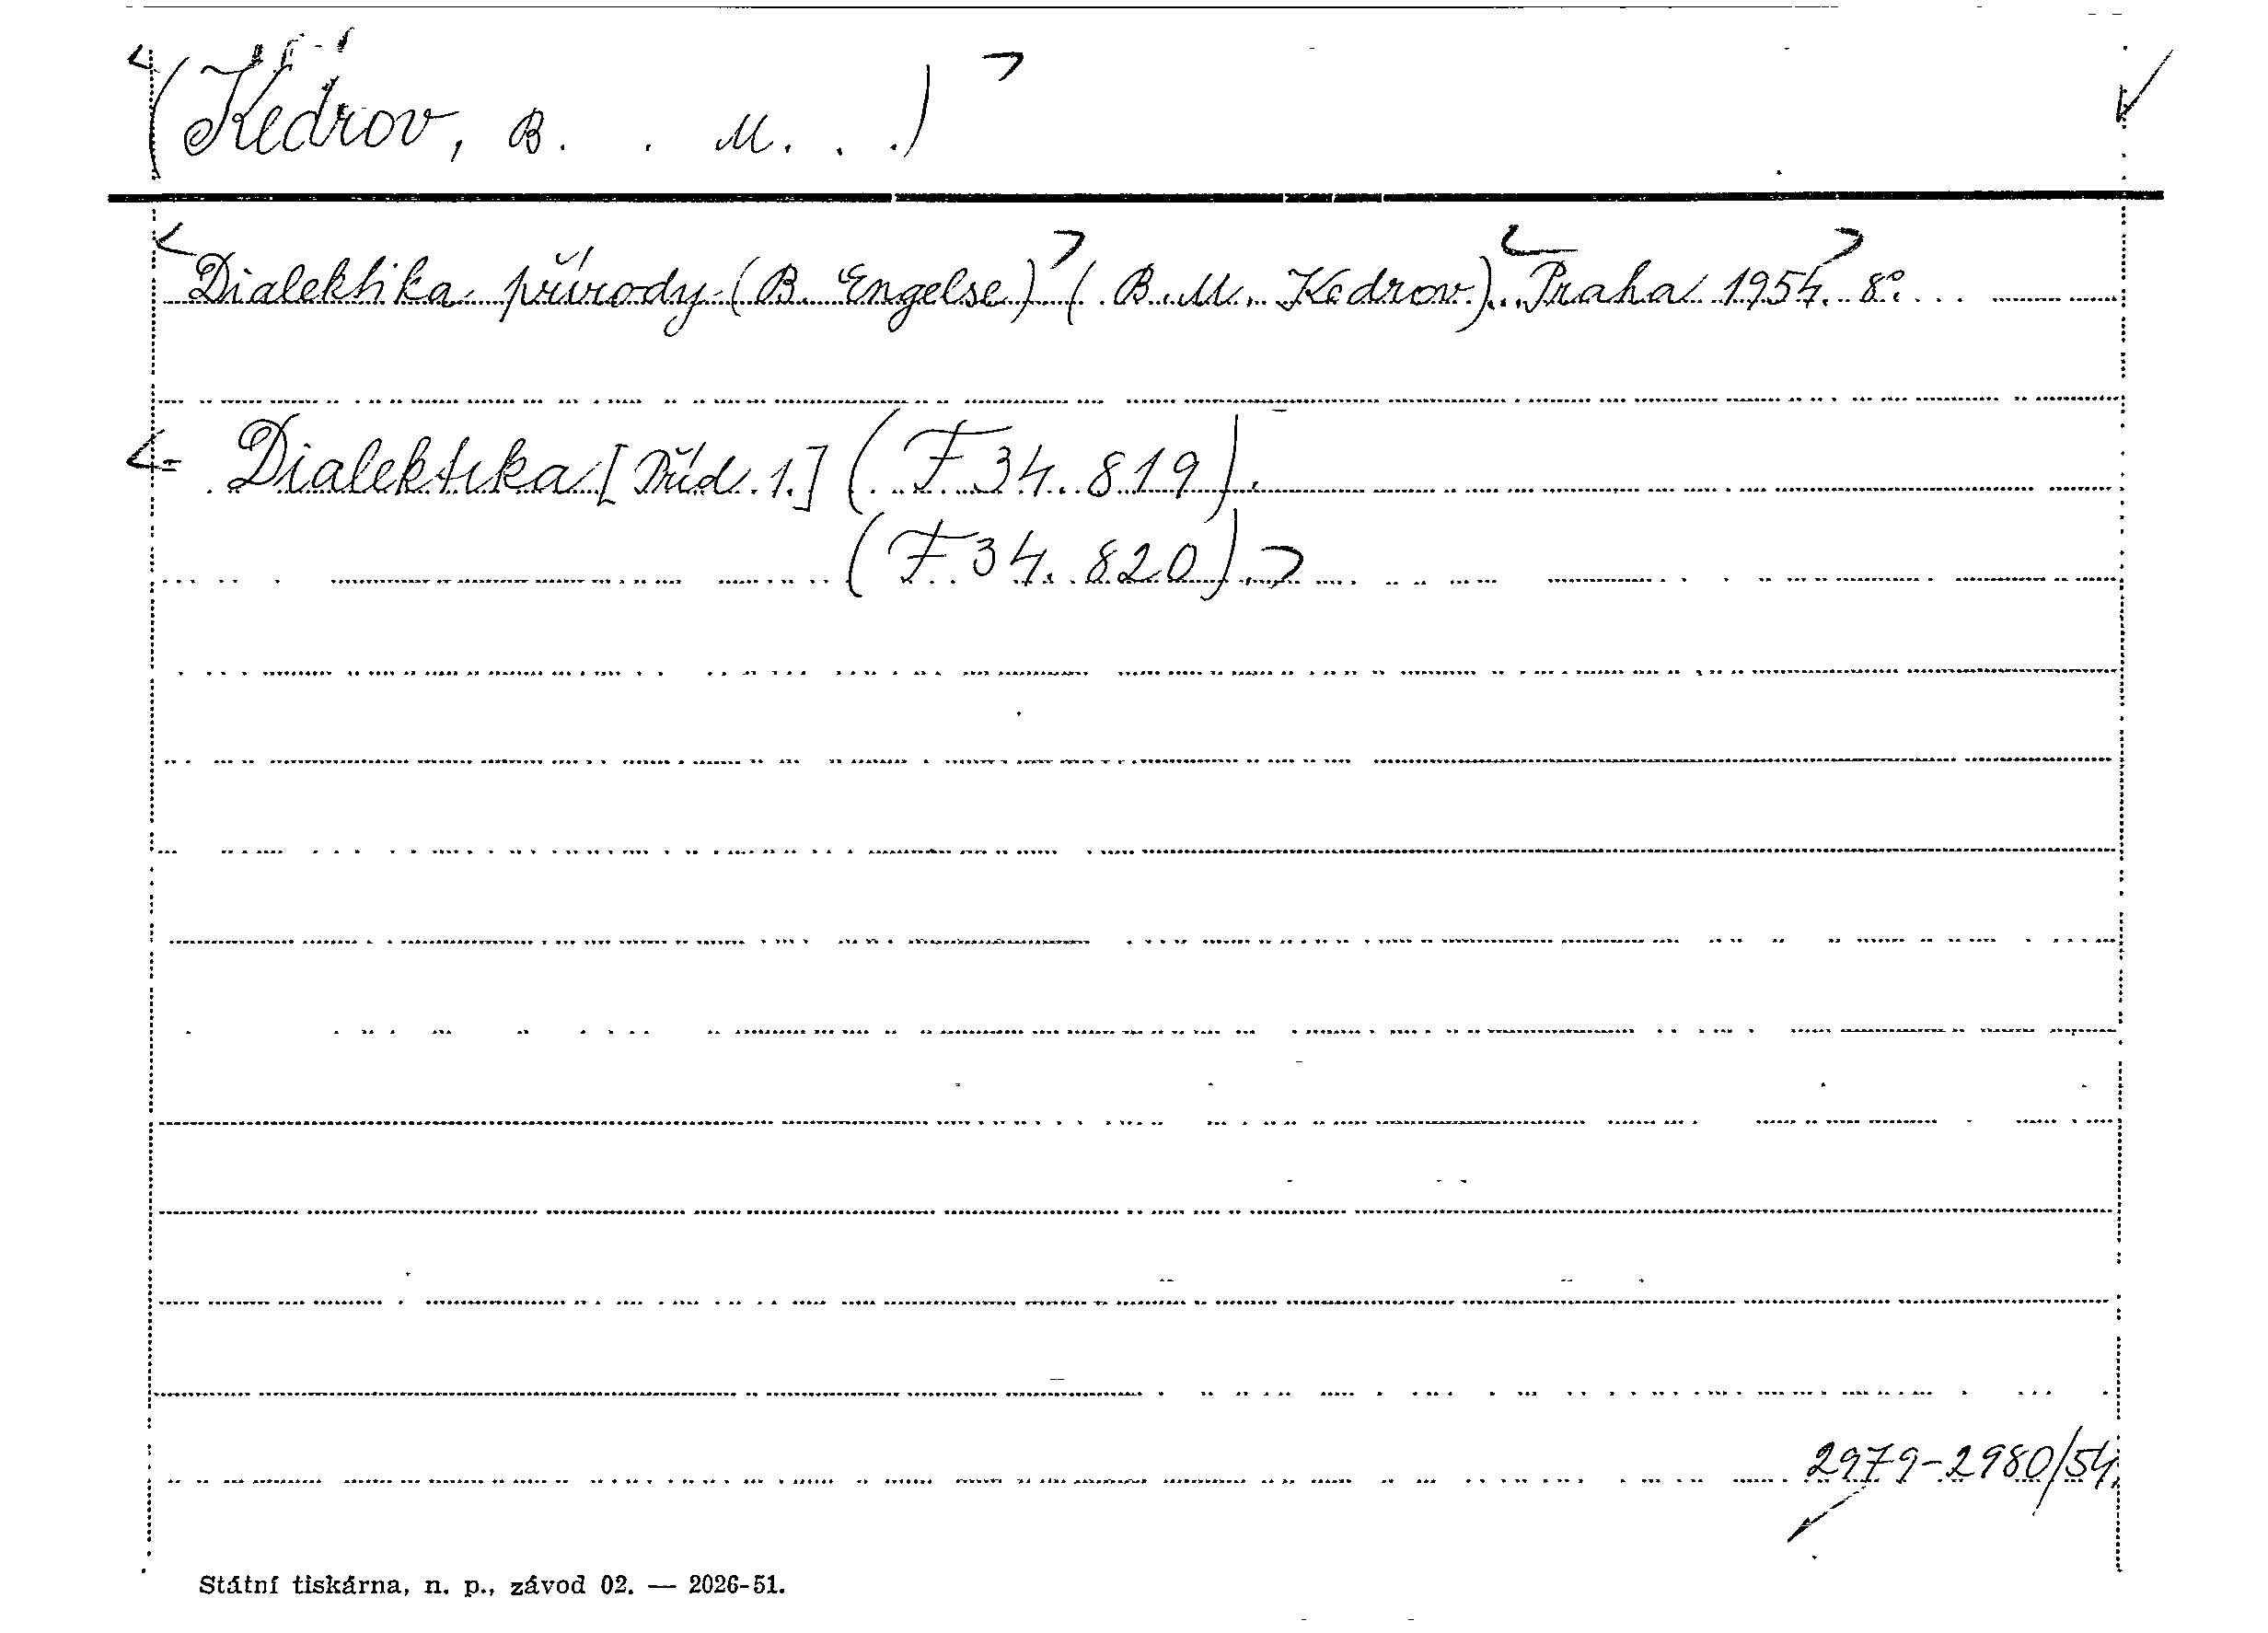 (Kedrov, B. . M. . .)
Dialektika přírody (B. Engelse) (B. M. Kedrov). Praha 1954. 8°.
= Dialektika [Příd. 1.] (F 34.819).
(F 34.820).
2979-2980/54
Státní tiskárna, n. p., závod 02. — 2026-51.